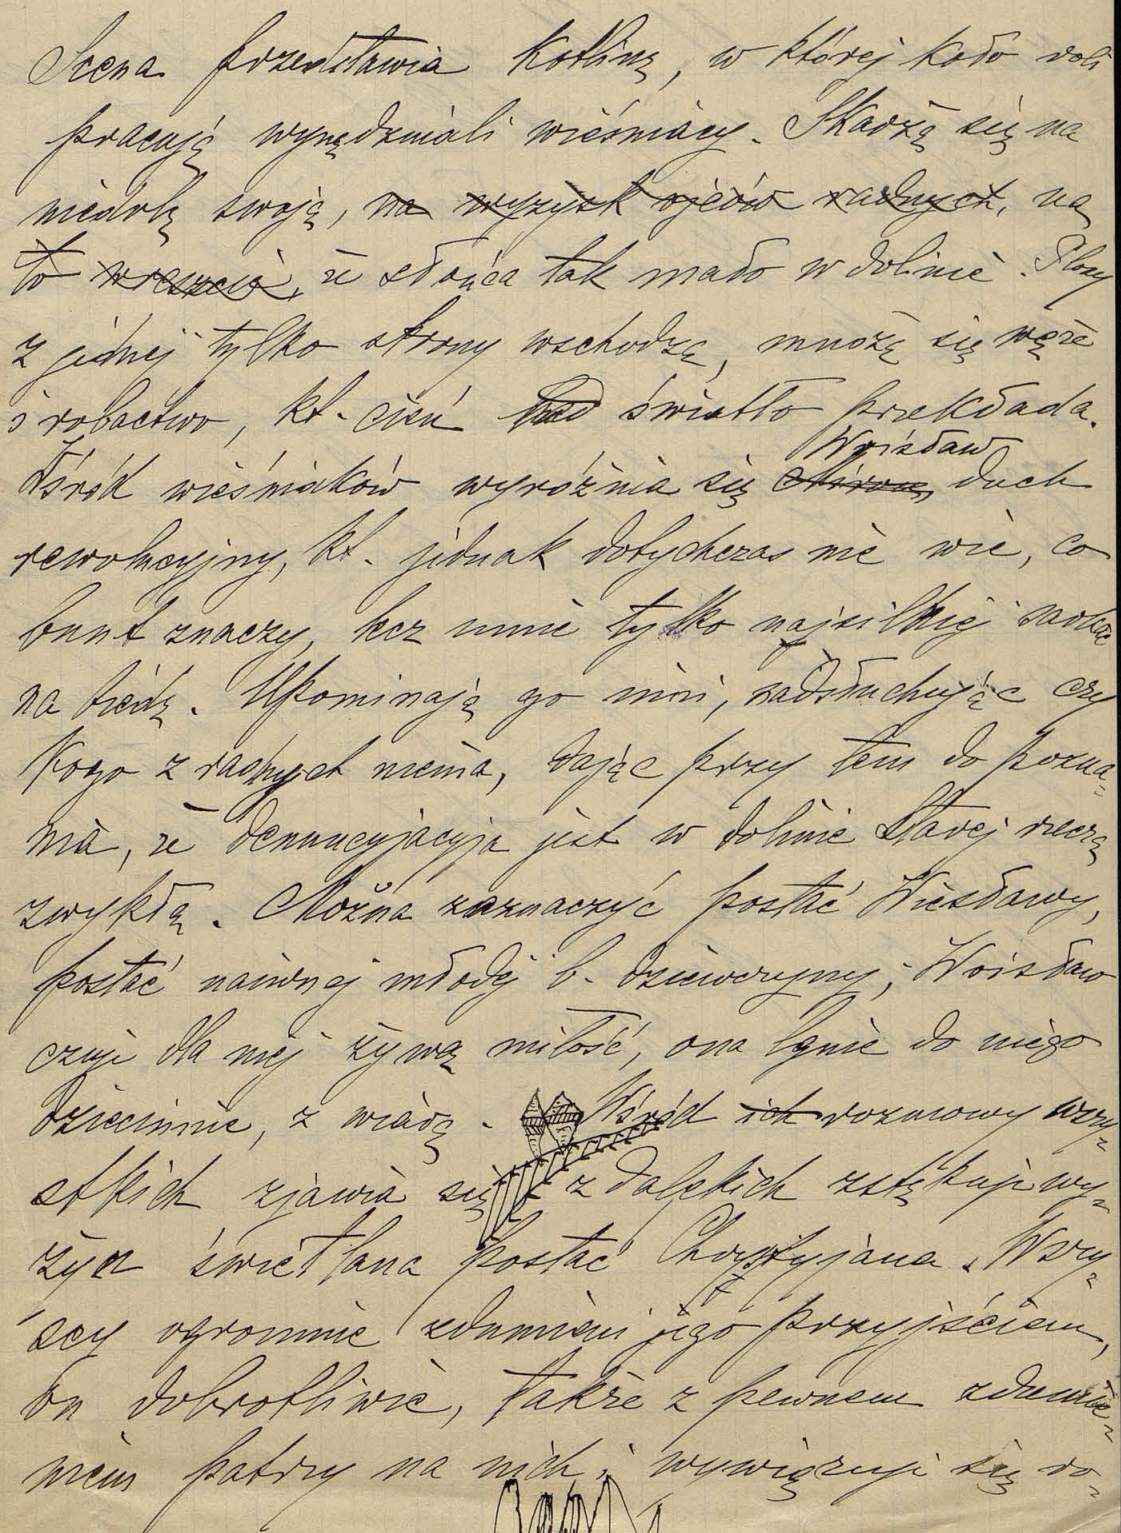 Scena przedstawia kotlinę, w której koło roli
pracują wynędzniali wieśniacy. Skarżą się na
niedolę swoją, na wyzysk ojców radnych, na
to wreszcie, że słońca tak mało w dolinie. Plony
z jednej tylko strony wschodzą, mnożą się węże
i robactwo, kt. cień nad światło przekłada.
Wśród wieśniaków wyróżnia się Miron Woisław duch
rewolucyjny, kt. jednak dotychczas nie wie, co
bunt znaczy, lecz umie tylko najsilniej szlochać
na biedę. Upominają go inni, nadsłuchując czy
kogo z radnych niema, dając przy tem do pozna-
nia, że denuncyjacyja jest w dolinie Starej rzeczą
zwykłą. Można zaznaczyć postać Wiesławy,
postać naiwnej młodej b. dziewczyny; Woisław
czuje dla niej żywą miłość, ona lgnie do niego
dziecinnie, z wiarą. Wśród ich rozmowy wszy-
stkich zjawia się z dalekich zstępując wy-
żyn świetlana postać Chrystyjana. Wszy-
scy ogromnie zdumieni jego przyjściem,
on dobrotliwie, także z pewnem zdumie-
niem patrzy na nich i wywięzuje się ro-